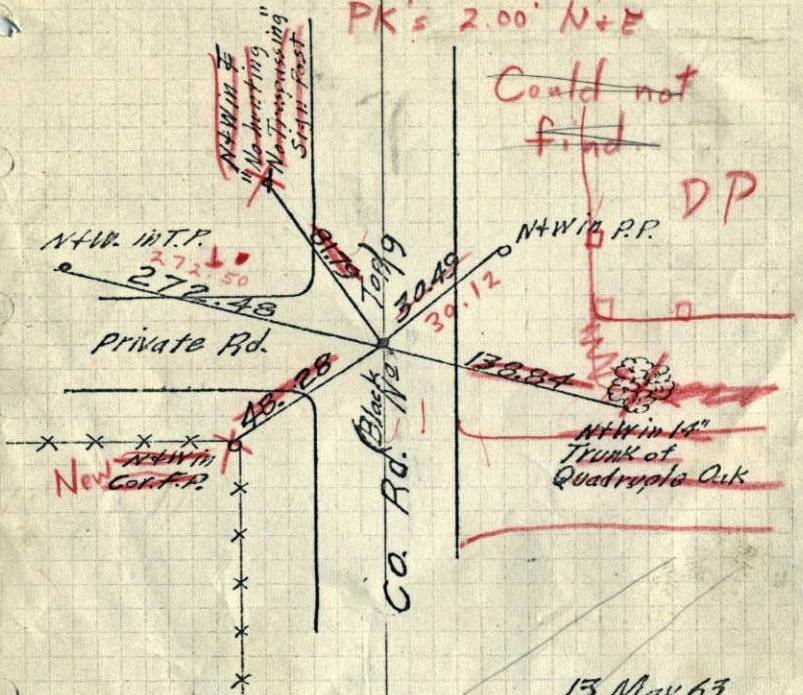 PK's 2.00' N+E
Could not
find.
DP
N+W in
"No hunting
No Trespassing"
Sign Post
N+W. in T.P.
272.50
272.48
81.79
30.49
30.12
N+W in P.P.
Private Rd.
48.28
138.84
Co. Rd. No. 19
(Black Top)
New
N+W in
Cor. F.P.
N+W in 14"
Trunk of
Quadruple Oak
13 May 63